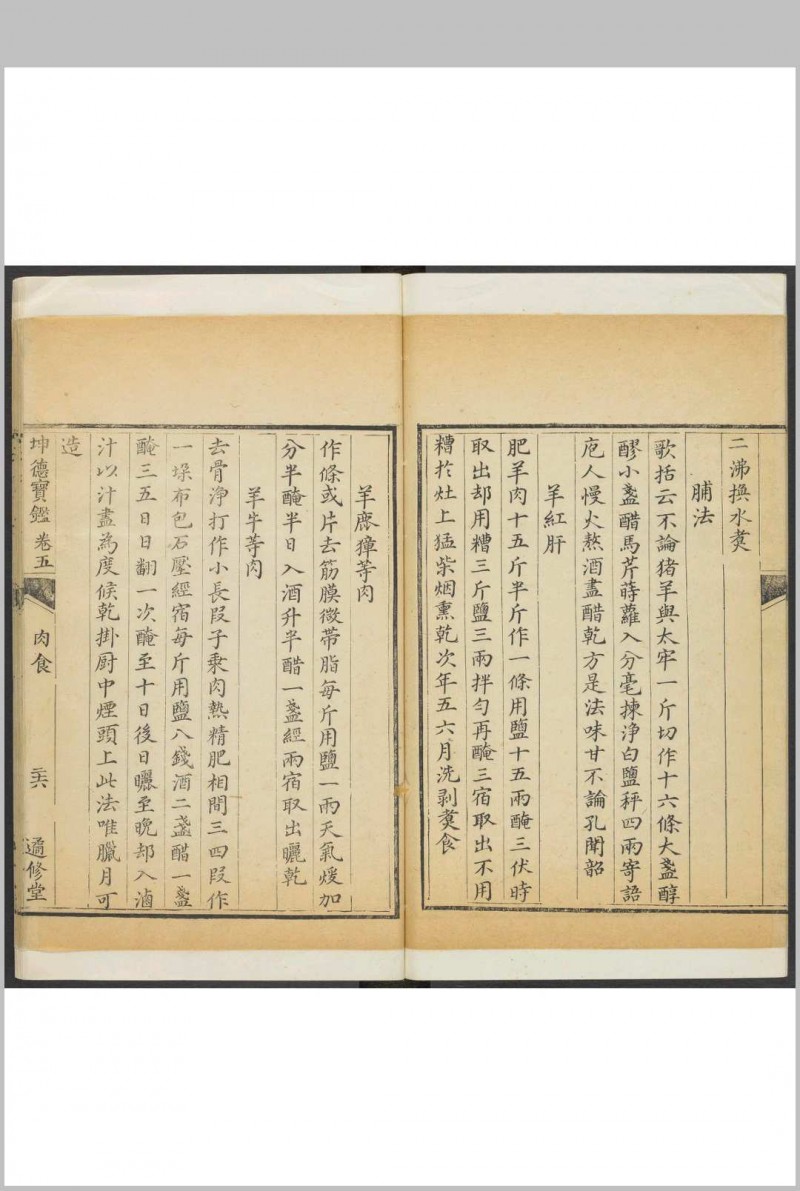 二沸換水煑
脯法
歌括云不論猪羊與太牢一斤切作十六條大盞醇
醪小盞醋馬芹蒔蘿入分毫揀净白鹽秤四兩寄語
庖人慢火熬酒盡醋乾方是法味甘不論孔聞韶
羊紅肝
肥羊肉十五斤半斤作一條用鹽十五兩醃三伏時
取出却用糟三斤鹽三兩拌勻再醃三宿取出不用
糟於灶上猛柴烟熏乾次年五六月洗剥煑食
羊鹿獐等肉
作條或片去筋膜微帶脂每斤用鹽一兩天氣煖加
分半醃半日入酒升半醋一盞經兩宿取出曬乾
羊牛等肉
去骨净打作小長段子乘肉熱精肥相間三四段作
一垛布包石壓經宿每斤用鹽八錢酒二盞醋一盞
醃三五日日翻一次醃至十日後日曬至晚却入滷
汁以汁盡為度候乾掛厨中煙頭上此法唯臘月可
造
坤德寶鑑 卷五 肉食 二六 適修堂